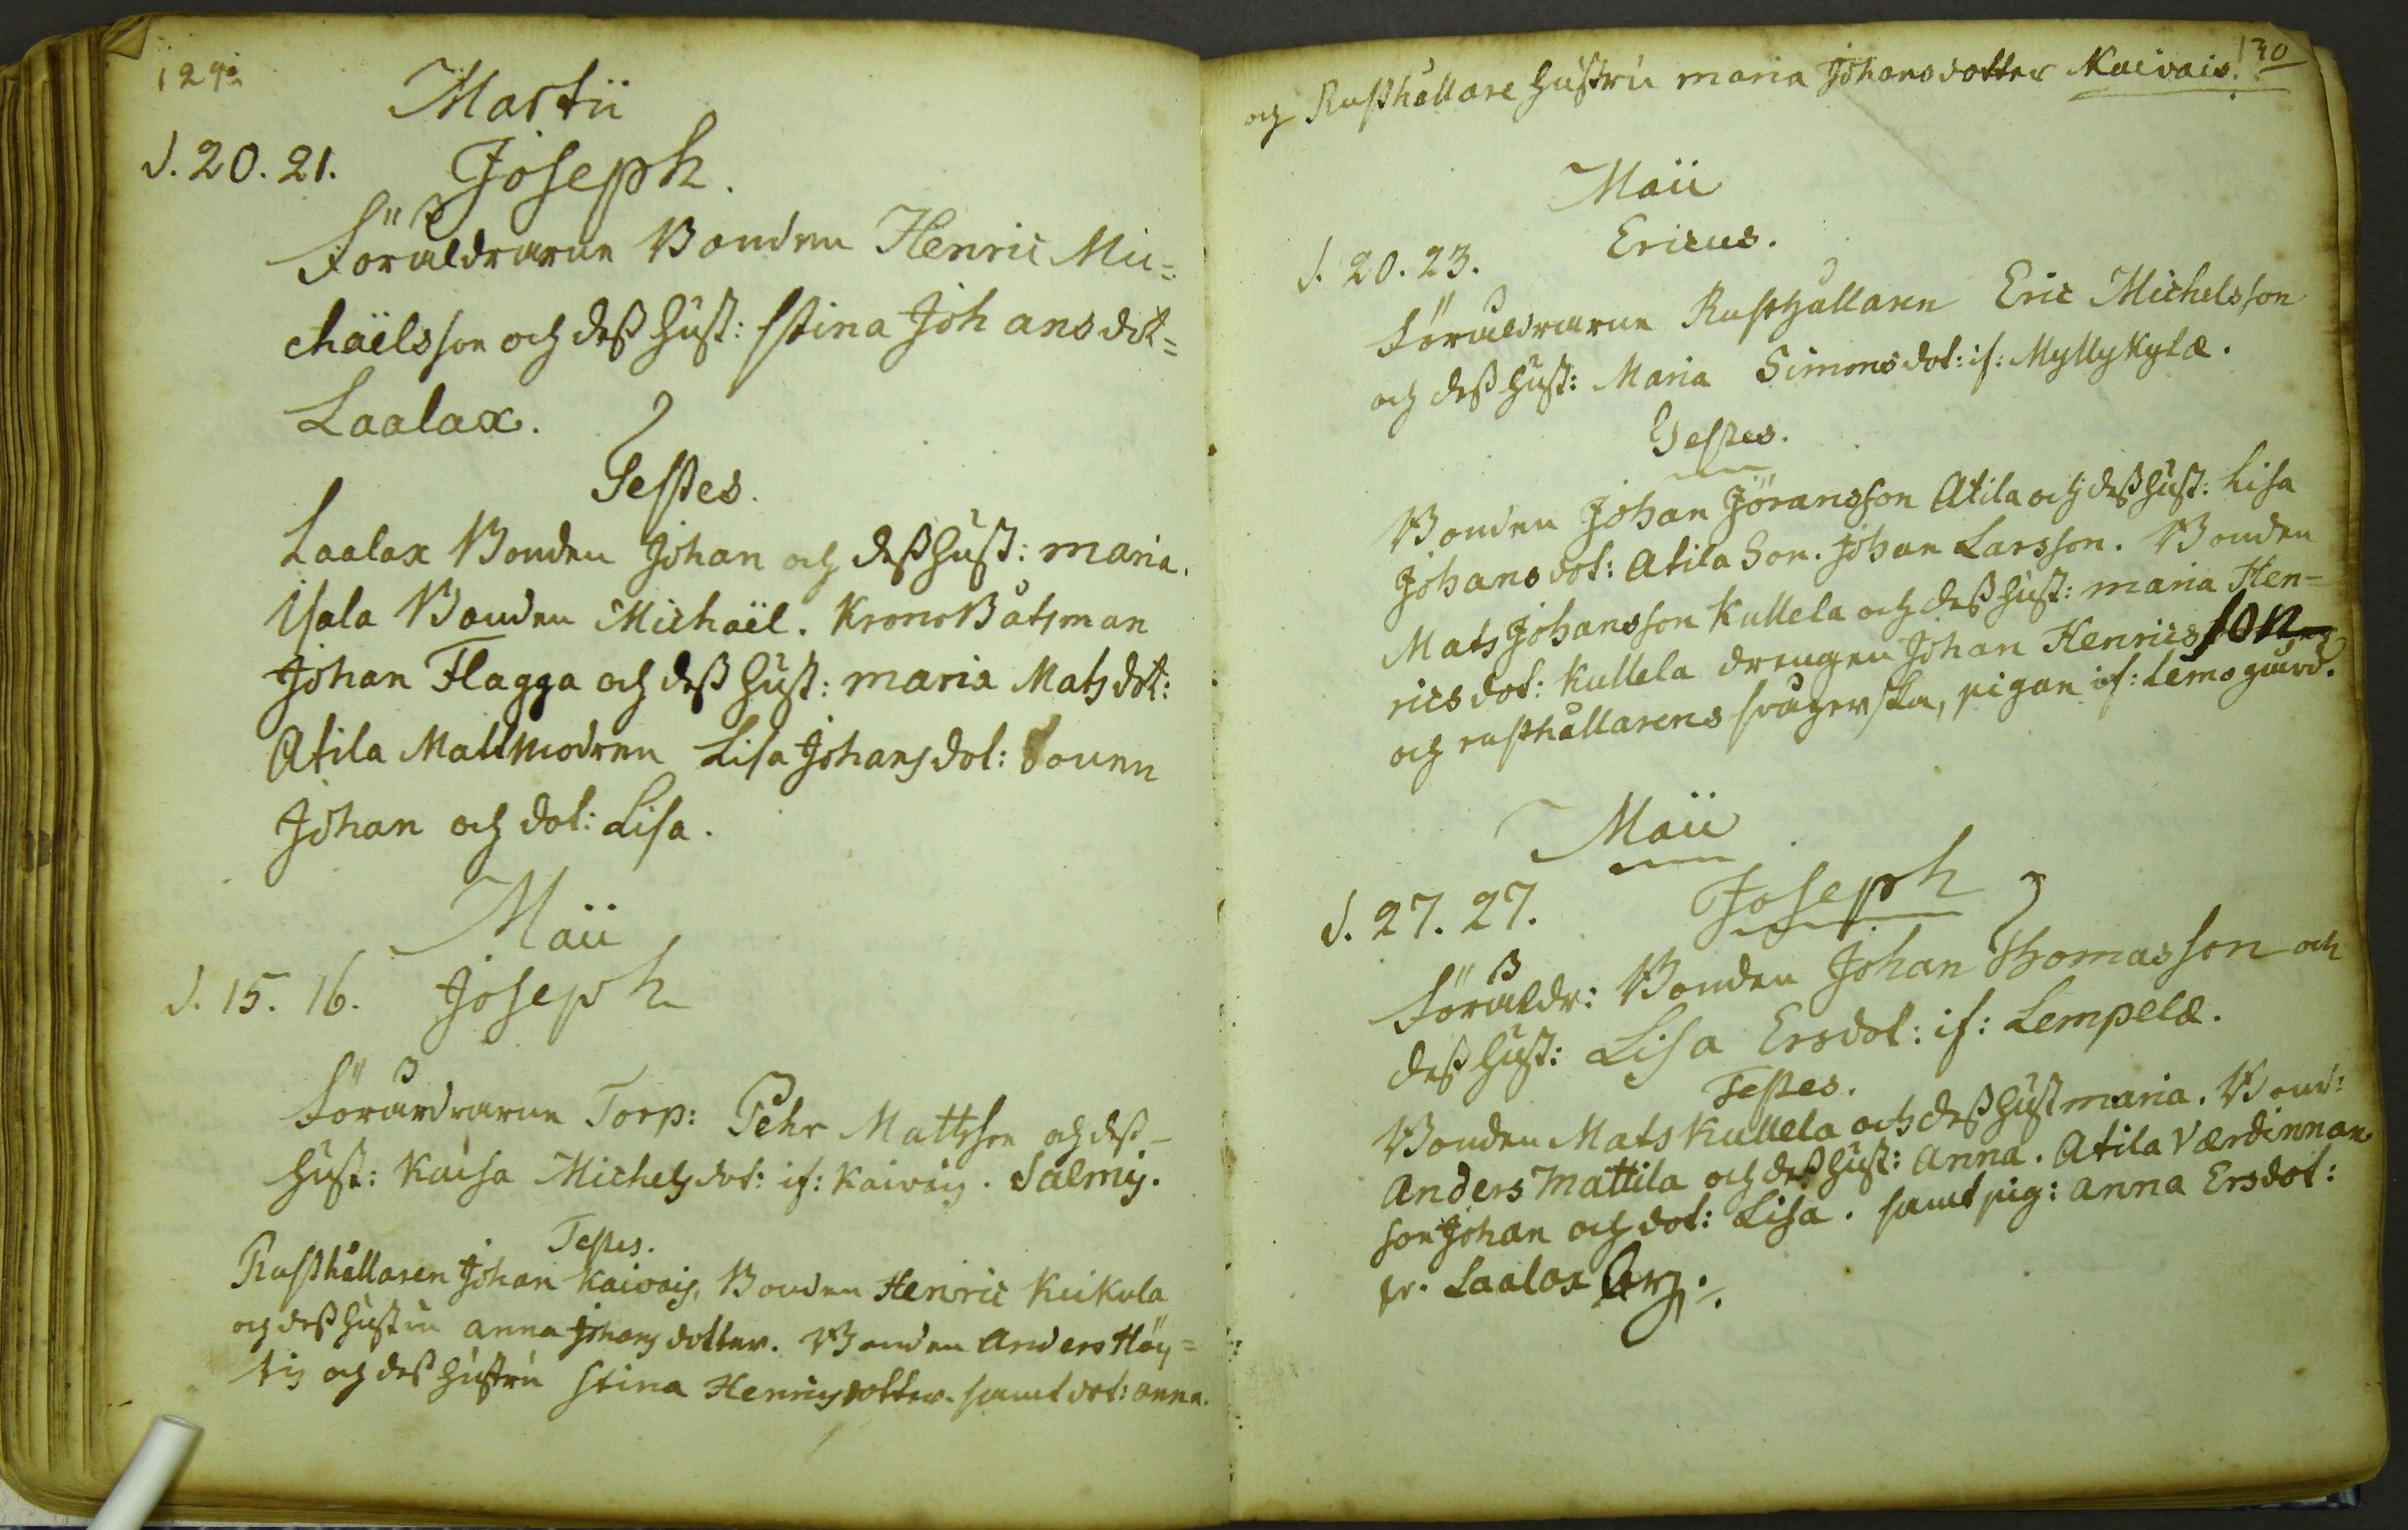 129.
Martii
d. 20. 21. Joseph.
Föräldrarne Bonden Henric Mic=
chaëlsson och deß Hust: Stina Johansdot=
Laalax.
Testes.
Laalax Bonden Johan och deß Hust: Maria.
Isala Bonden Michaël. KronoBåtsman
Johan Flagga och deß Hust: Maria Matsdot:
Atila Matmodren Lisa Johansdot: Sonen
Johan och dot: Lisa.
Maii
d. 15. 16. Joseph
Föräldrarne Torp: Pehr Mattsson och deß
Hust: Kaisa Michelsdot: if: Kaivais. Salmis.
Testes.
Rusthållaren Johan Kaivais, Bonden Henric Kukola
och deß Hustru Anna Johansdotter. Bonden Anders
och deß Hustru Stina Henricsdotter. samt dot: Anna.
130
och Rusthållare Hustru Maria Johansdotter Kaivais.
Maii
d. 20. 23. Ericus.
Föräldrarne Rusthållaren Eric Michelsson
och deß Hust: Maria Simonsdot: if: Myllykylæ.
Testes.
Bonden Johan Jöransson Atila och deß Hust: Lisa
Johansdot: Atila Son. Johan Larsson. Bonden
Mats Johansson Kullela och deß Hust: Maria Hen=
ricsdot: Kullela drengen Johan Henricsson
och rusthållarens svägerska, pigan if: Lemo gård.
Maii
d. 27. 27. Joseph
Föräldr: Bonden Johan Thomasson och
deß Hust: Lisa Ersdot: if: Lempelæ.
Testes.
Bonden Mats Kullela och deß Hust Maria. Bond:
Anders Mattila och deß Hust: Anna. Atila Værdinnan
son Johan och dot: Lisa. samt pig: Anna Ersdot:
fr. Laalax